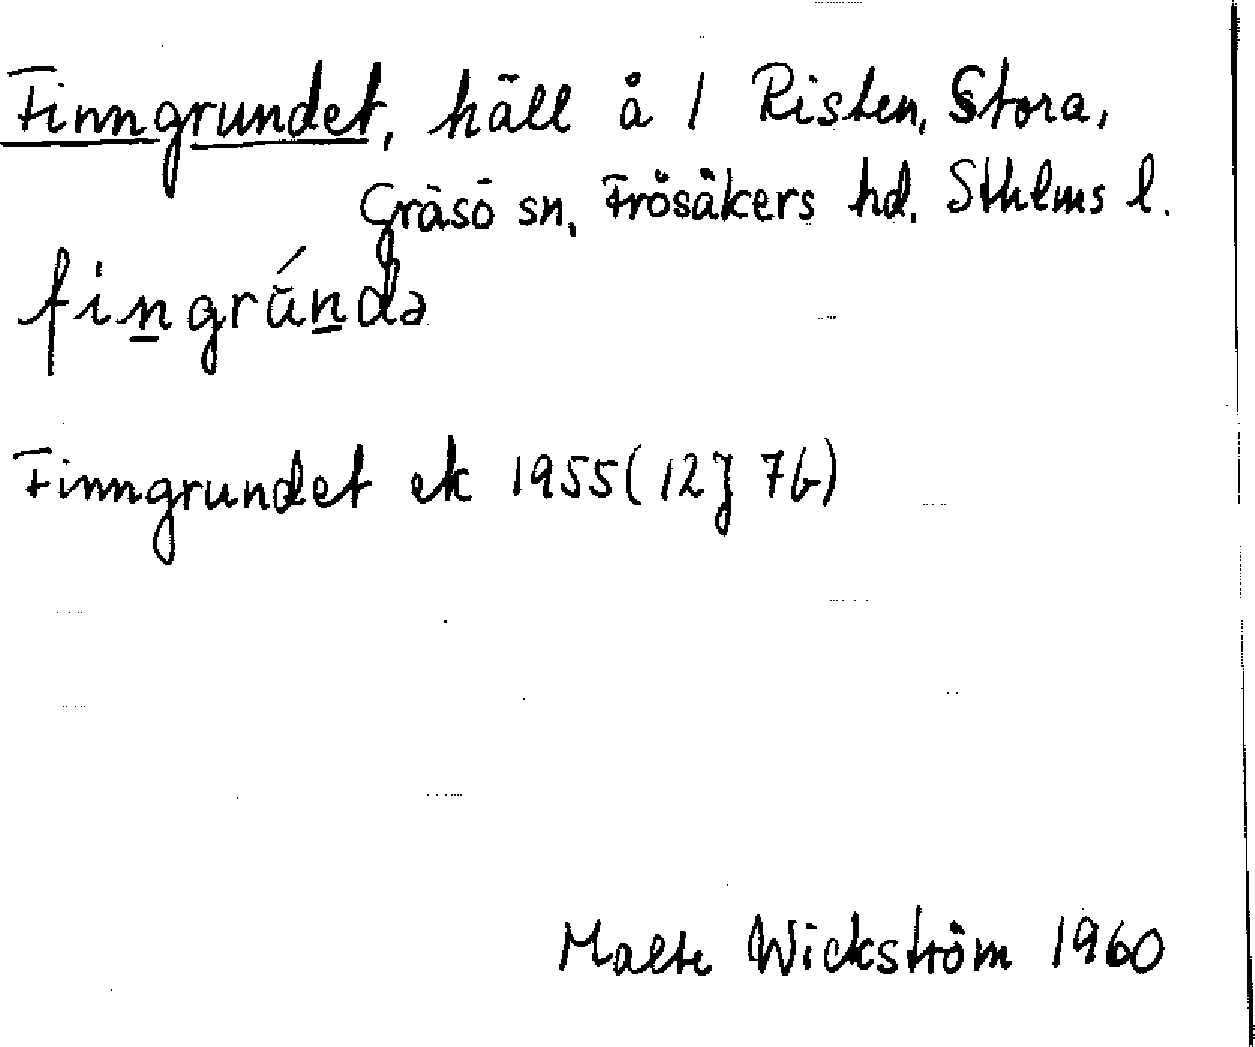 Finngrundet, häll å 1 Risten, Stora,
Gräsö sn, Frösåkers hd. Sthlms l.
fingrúndə
Finngrundet ek 1955 (12J 7b)
Malte Wickström 1960